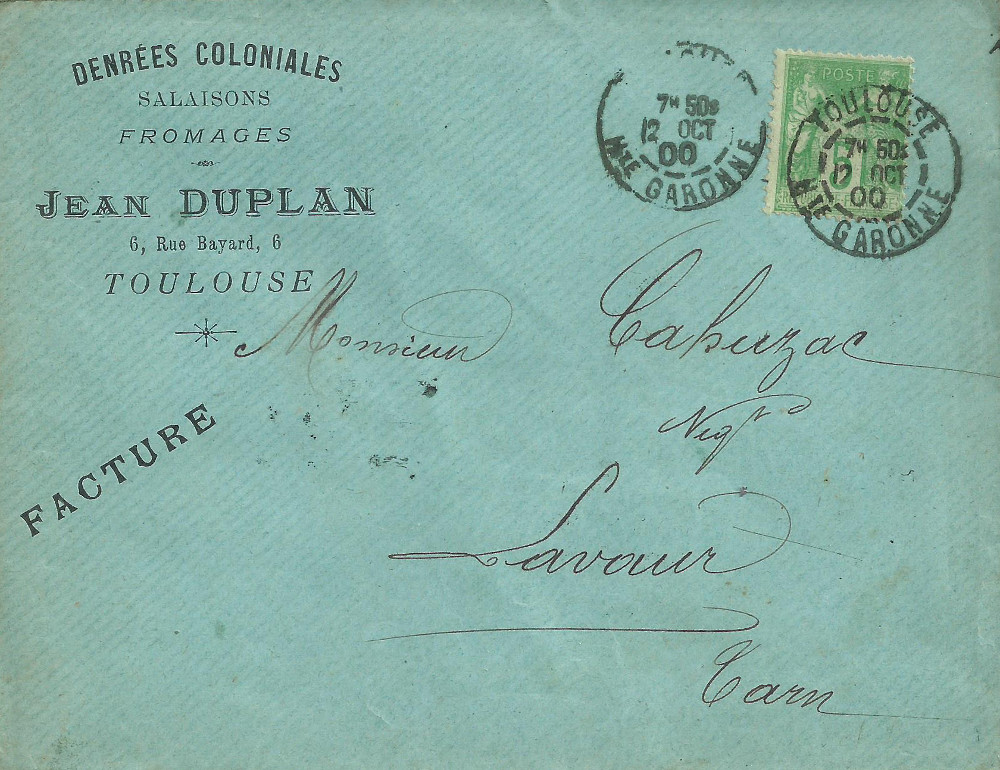 DENRÉES COLONIALES
SALAISONS
FROMAGES
JEAN DUPLAN
6, Rue Bayard, 6
TOULOUSE
FACTURE
7ᴴ 50ˢ
12 OCT
00
Hᵀᴱ GARONNE
POSTE
5
TOULOUSE
7ᴴ 50ˢ
12 OCT
00
Hᵀᴱ GARONNE
Monsieur Cahuzac
Negᵗ
Lavaur
Tarn